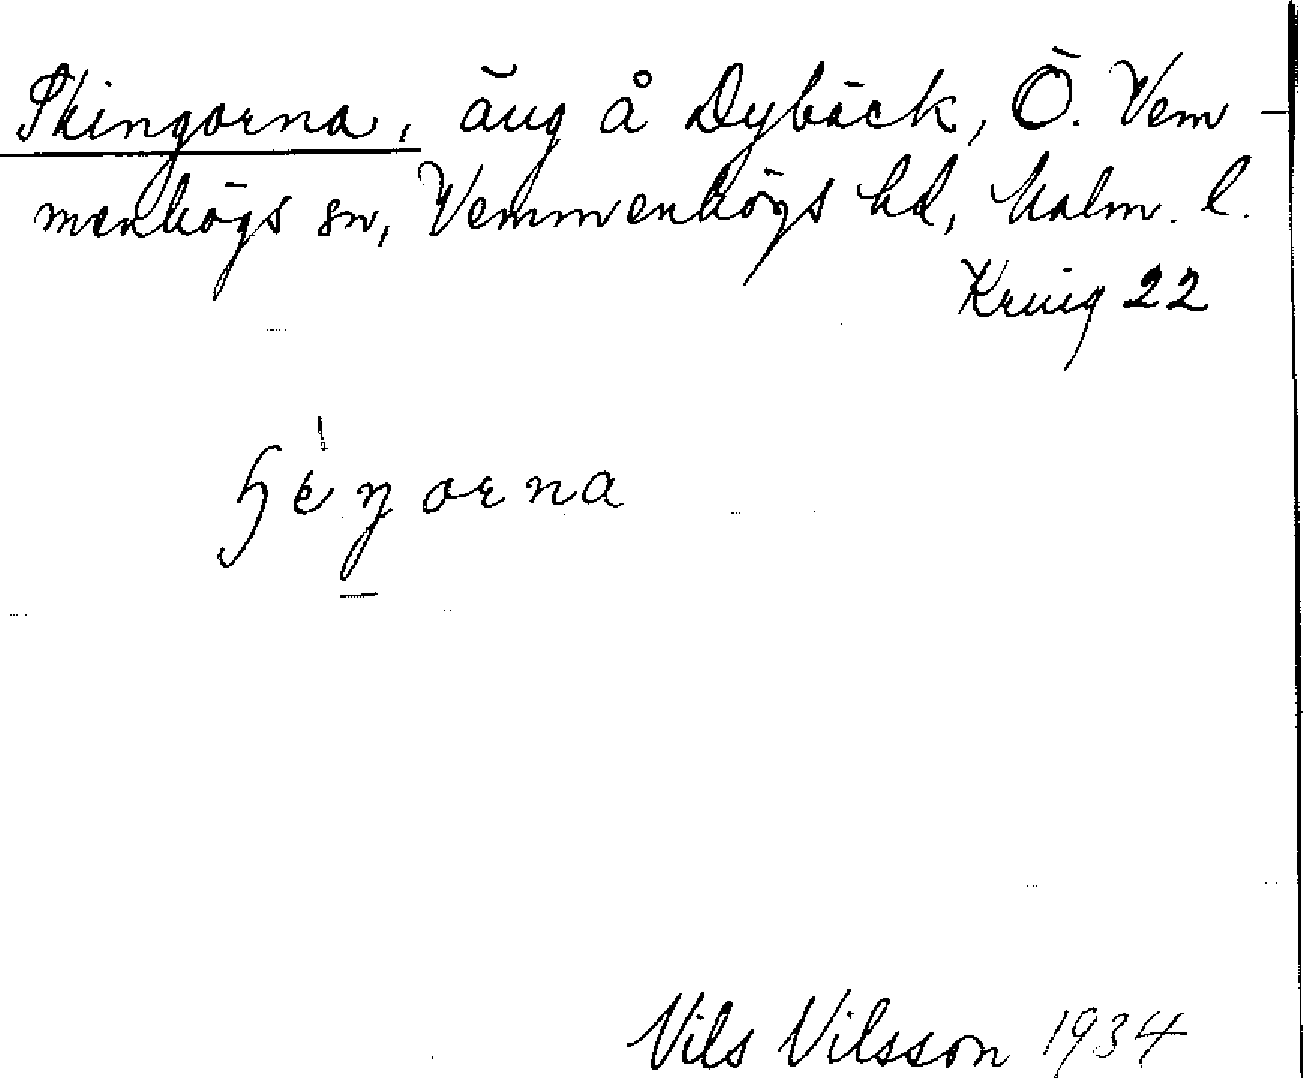 Skingorna, äng å Dybäck, Ö. Vem-
menhögs sn, Vemmenhögs hd, Malm. l.
Kruig 22
ɧèŋorna
Nils Nilsson 1934